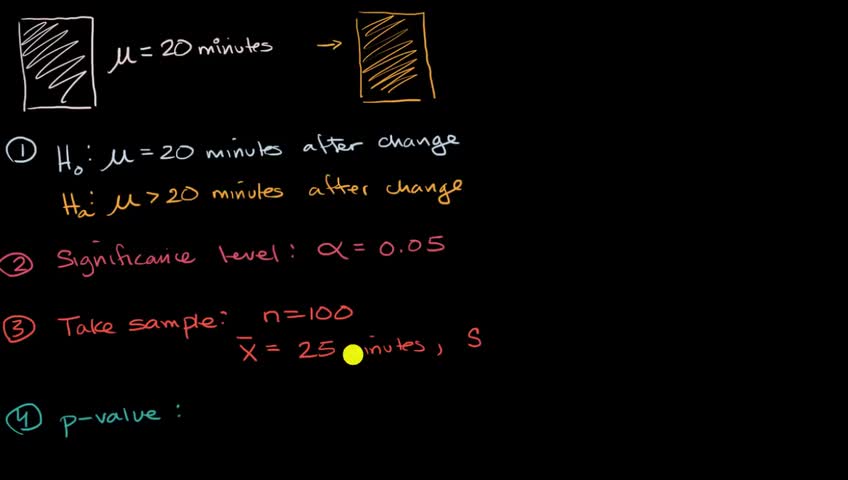 μ = 20 minutes →
① H₀: μ = 20 minutes after change
Hₐ: μ > 20 minutes after change
② Significance level: α = 0.05
③ Take sample: n=100
x̄ = 25 minutes, S
④ p-value: